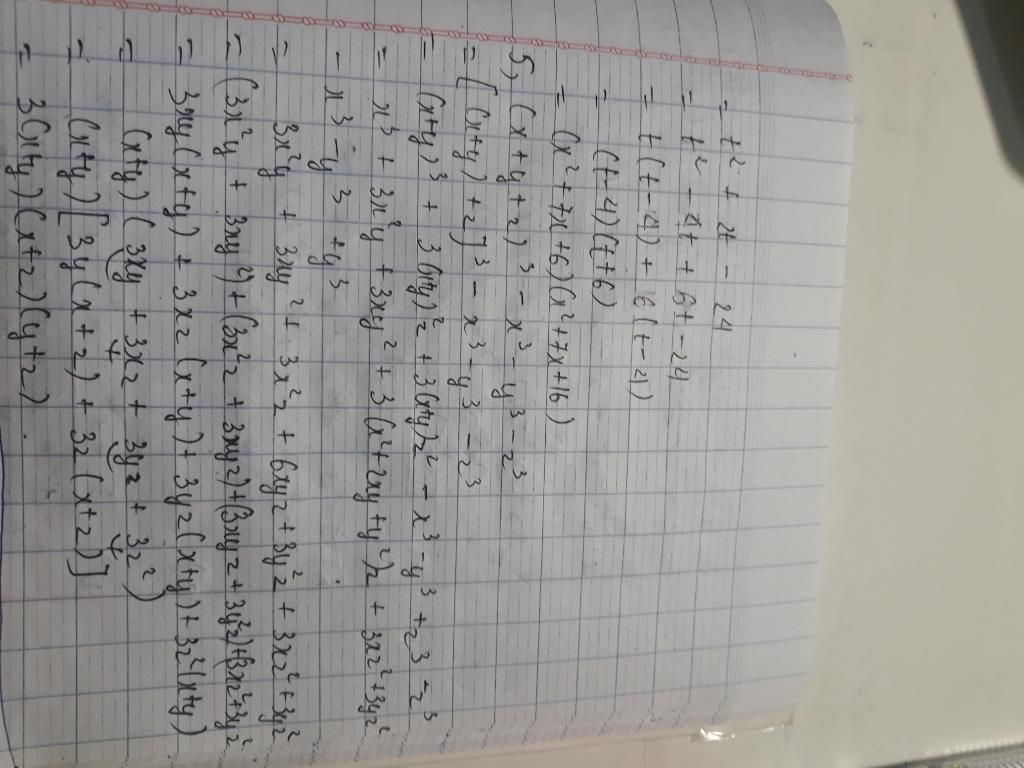 = t² + 2t - 24
= t² - 4t + 6t - 24
= t(t-4) + 6(t-4)
= (t-4)(t+6)
= (x²+7x+6)(x²+7x+16)
5, (x+y+z)³ - x³ - y³ - z³
= [(x+y)+z]³ - x³ - y³ - z³
= (x+y)³ + 3(x+y)²z + 3(x+y)z² - x³ - y³ + z³ - z³
= x³ + 3x²y + 3xy² + 3(x²+2xy+y²)z + 3xz²+3yz²
- x³ - y³ + y³
= 3x²y + 3xy² + 3x²z + 6xyz + 3y²z + 3xz² + 3yz²
= (3x²y + 3xy²) + (3x²z + 3xyz) + (3xyz + 3y²z) + (3xz²+3yz²
= 3xy(x+y) + 3xz(x+y) + 3yz(x+y) + 3z²(x+y)
= (x+y)(3xy + 3xz + 3yz + 3z²)
= (x+y)[3y(x+z) + 3z(x+z)]
= 3(x+y)(x+z)(y+z).